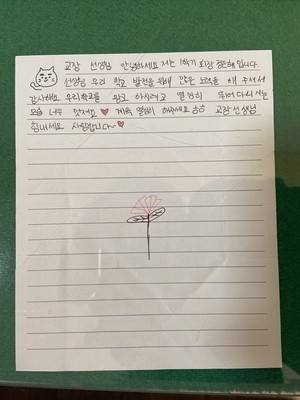 교장 선생님 안녕하세요 저는 1학기 회장 정든해 입니다.
선생님 우리 학교 발전을 위해 많은 노력을 해 주셔서
감사해요 우리학교를 위해 열심히 뛰어 다니시는
모습 너무 멋져요 ♥ 계속 열심히 해주세요 교장선생님
힘내세요 사랑합니다~♥